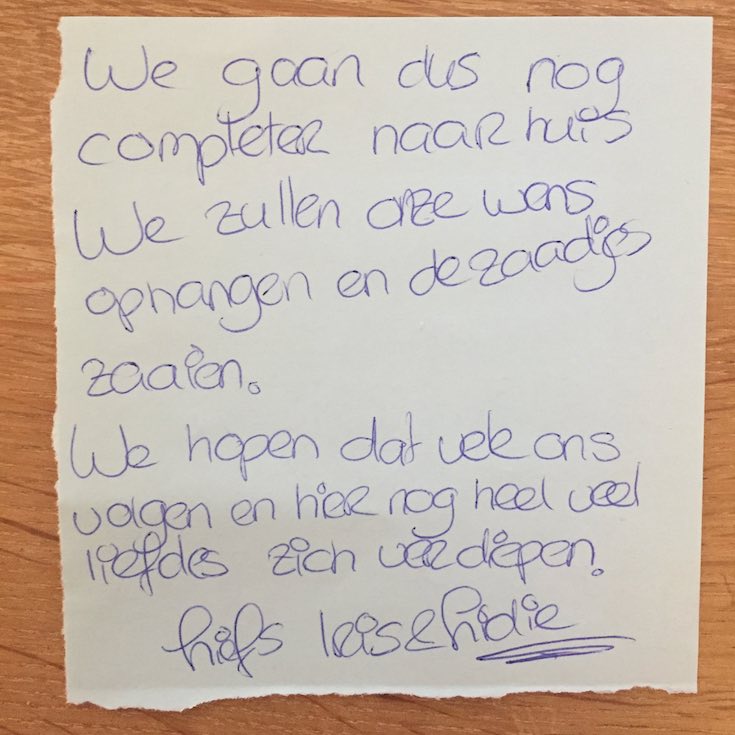 We gaan dus nog
completer naar huis
We zullen onze wens
ophangen en de zaadjes
zaaien.
We hopen dat vele ons
volgen en hier nog heel veel
liefdes zich verdiepen.
liefs